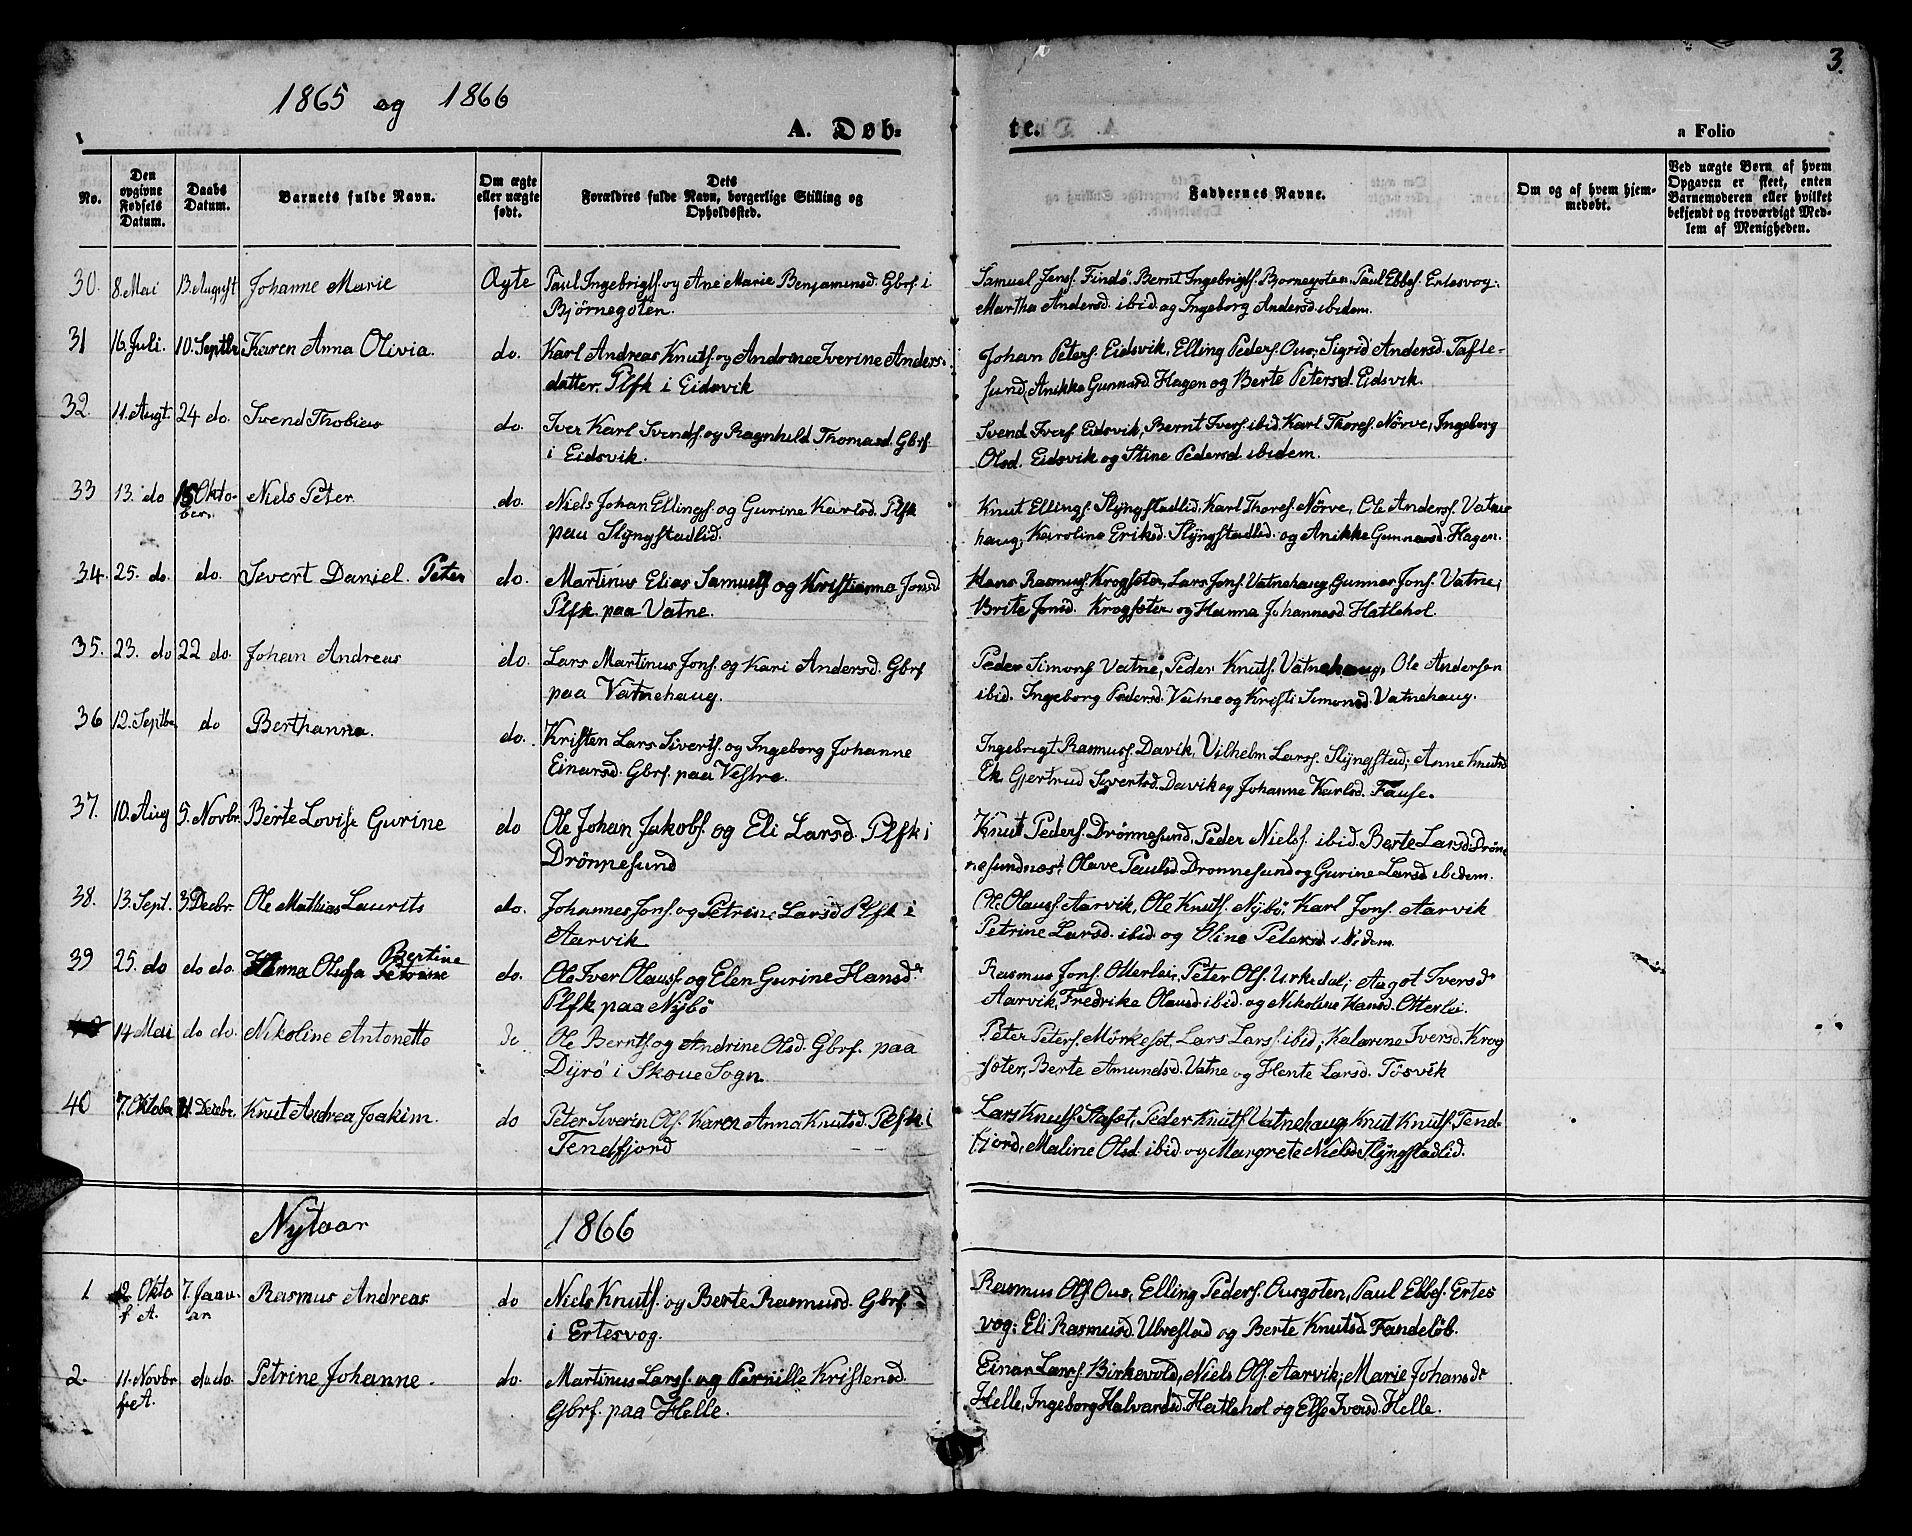 1865 og 1866
3.
A. Døb-
te.
a Folio
No.
Den opgivne Fødsels Datum.
Daabs Datum.
Barnets fulde Navn.
Om ægte eller uægte født.
Dets Forældres fulde Navn, borgerlige Stilling og Opholdssted.
Faddernes Navne.
Om og af hvem hjemmedøbt.
Ved uægte Børn af hvem Opgaven er skeet, enten Barnemoderen eller hvilket bekjendt og troværdigt Medlem af Menigheden.
30. 8 Mai 13 August Johanne Marie Ægte Paul Ingebrigts. og Ane Marie Benjaminsd. Gbrf i
Björnegoten.
Samuel Jens. Findö, Bernt Ingebrigts. Bjornegoten, Paul Ebbes. Ertesvog;
Martha Andersd. ibid. og Ingeborg Andersd ibidem.
31 16. Juli. 10. Septbr Karen Anna Olivia. do. Karl Andreas Knuts. og Andrinae Iverine Anders-
datter. Plfk i Eidsvik
Johan Peters. Eidsvik, Elling Peders. Ous, Sigrid Andersd. Tafle-
sund, Anikka Gunnarsd. Hagen og Berte Petersd. Eidsvik.
32. 11. Augt. 24 do. Svend Thobias do. Iver Karl Svends. og Ragnhild Thomasd. Gbrf.
i Eidsvik.
Svend Ivers. Eidsvik, Bernt Ivers. ibid. Karl Thores. Nörve, Ingeborg
Olsd. Eidsvik og Stine Pedersd ibidem.
33 13. do 15 Okto-
ber. Niels Peter do. Niels Johan Ellings. og Gurine Karlsd. Plfk
paa Slÿngstadlid.
Knut Ellings. Slÿngstadlid, Karl Thores. Nörve, Ole Anderss. Vatne
haug, Karoline Eriksd. Slÿngstadlid. og Anikke Gunnarsd. Hagen.
34. 25. do. do. Severt Daniel. Peter do. Martinus Elias Samuels og Kristianna Jonsd
Plfk. paa Vatne.
Hans Rasmus. Krogsæter, Lars Jons. Vatnehaug, Gunnar Jons. Vatne,
Brite Jonsd. Krogsæter og Hanna Johannesd. Hatlehol.
35. 23. do 22 do. Johan Andreas do. Lars Martinus Jons. og Kari Andersd. Gbrf
paa Vatnehaug.
Peder Simons Vatne, Peder Knuts. Vatnehaug, Ole Andersen
ibid. Ingeborg Pedersd. Vatne og Kristi Simonsd. Vatnehaug.
36 12. Septbr do Berthanna. do. Kristen Lars Siverts. og Ingeborg Johanne
Einarsd. Gbrf. paa Vestre.
Ingebrigt Rasmus. Davik, Vilhelm Larss. Slÿngstad; Anne Knutsd
Ek. Gjertrud Sivertsd. Davik og Johanne Karlsd. Fause.
37. 10. Aug 5. Novbr. Berte Lovise Gurine do Ole Johan Jakobs. og Eli Larsd. Plfk i
Drönnesund
Knut Peders. Drönnesund, Peder Niels. ibid. Berte Larsd. Drön-
nesundnæs, Olave Paulsd. Dronnesund og Gurine Larsd. ibidem.
38. 13. Sept. 3. Decbr. Ole Mathias Laurits do. Johannes Jons. og Petrine Larsd Plfk i
Aarvik
Ole Olauss Aarvik, Ole Knuts. Nÿbö, Karl Jons. Aarvik
Petrine Larsd. ibid og Oline Petersd ibidem.
39 25. do do do. Hanna Olufa Bertine
Petrine do. Ole Iver Olauss. og Elen Gurine Hansdr.
Plfk. paa Nÿbö
Rasmus Jons. Otterlei, Peter Ols. Urkedal; Aagot Iversdr
Aarvik, Fredrike Olausd. ibid. og Nikoline Hansd. Otterlei.
14 Mai do do. Nikoline Antonette do Ole Bernts. og Andrine Olsd. Gbrf. paa
Dÿrö i Skoue Sogn
Peter Peters. Mörkesæt, Lars Lars. ibid; Katarine Iversd. Krog
sæter, Berte Amundsd. Vatne og Hente Larsd. Tösvik
40 7. Oktobr Decbr. Knut Andrea Joakim. do Peter Siverin Ols. Karen Anna Knutsd. Plfk i
Tendfjord
Lars Knuts. Stafset, Peder Knuts. Vatnehaug, Knut Knuts. Tend-
fjord, Maline Olsd. ibid. og Margrete Nielsd Slÿngstadlid.
Nytaar 1866
1 Okto
f A. 7. Janu-
ar Rasmus Andreas do Niels Knuts. og Berte Rasmusd. Gbrf.
i Ertesvog.
Rasmus Ols. Ous, Elling Peders. Ousgoten, Paul Ebbes. Ertes
vog; Eli Rasmusd. Ulvestad og Berte Knutsd. Fandelöb.
2. 11. Novbr
f A. do do. Petrine Johanne. do. Martinus Larss. og Pernille Kristensd.
Gbrf. paa Helle.
Einar Larss Birkevold, Niels Ols. Aarvik; Marie Johansdr
Helle, Ingeborg Halvardsd. Hatlehol og Else Iversd. Helle.